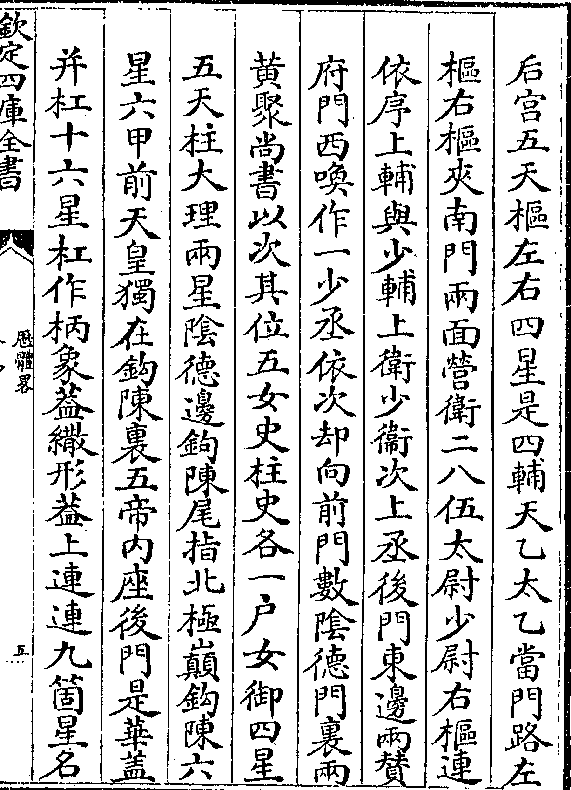 后宫五天樞左右四星是四輔天乙太乙當門路左
樞右樞夾南門兩面營衛二八伍太尉少尉右樞連
依序上輔與少輔上衛少衞次上丞後門東邊兩贊
府門西喚作一少丞依次却向前門數隂德門裏兩
黄聚尚書以次其位五女史柱史各一户女御四星
五天柱大理兩星隂德邊鈎陳尾指北極巔鈎陳六
星六甲前天皇獨在鈎陳裏五帝内座後門是華盖
并杠十六星杠作柄象葢繖形葢上連連九箇星名
欽定四庫全書
歴體畧
五